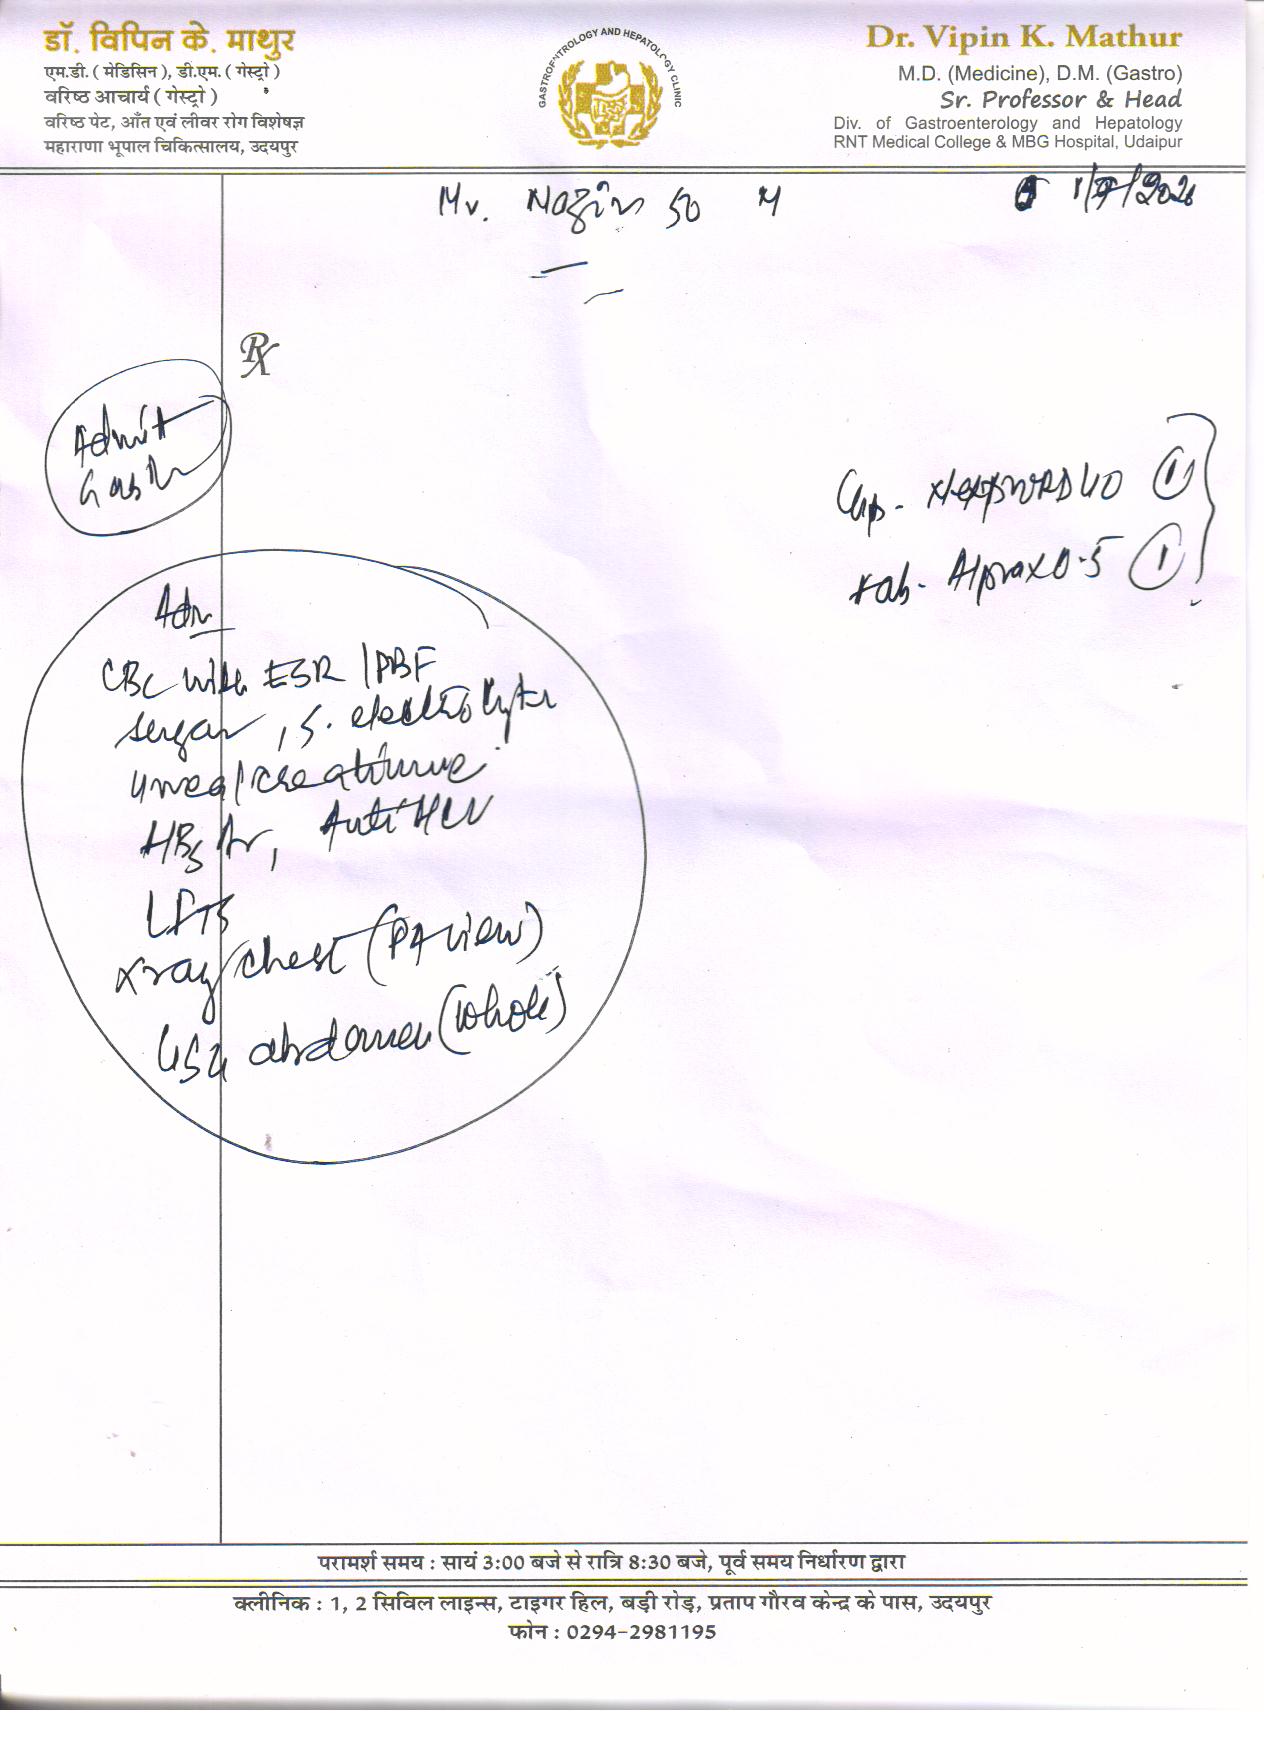 डॉ. विपिन के. माथुर
एम.डी. ( मेडिसिन ), डी.एम. ( गेस्ट्रो )
वरिष्ठ आचार्य ( गेस्ट्रो )
वरिष्ठ पेट, आँत एवं लीवर रोग विशेषज्ञ
महाराणा भूपाल चिकित्सालय, उदयपुर
GASTROENTROLOGY AND HEPATOLOGY CLINIC
Dr. Vipin K. Mathur
M.D. (Medicine), D.M. (Gastro)
Sr. Professor & Head
Div. of Gastroenterology and Hepatology
RNT Medical College & MBG Hospital, Udaipur
Mr. 50 M
Rx
Admit
Gastro
Cap. 40 1
Tab. Alprax 0.5 1
Adv
CBC with ESR / PBF
sugar, S. electrolytes
urea/creatinine
HBsAg, Anti HCV
LFTs
Xray chest (PA view)
USG abdomen (whole)
परामर्श समय : सायं 3:00 बजे से रात्रि 8:30 बजे, पूर्व समय निर्धारण द्वारा
क्लीनिक : 1, 2 सिविल लाइन्स, टाइगर हिल, बड़ी रोड़, प्रताप गौरव केन्द्र के पास, उदयपुर
फोन : 0294-2981195